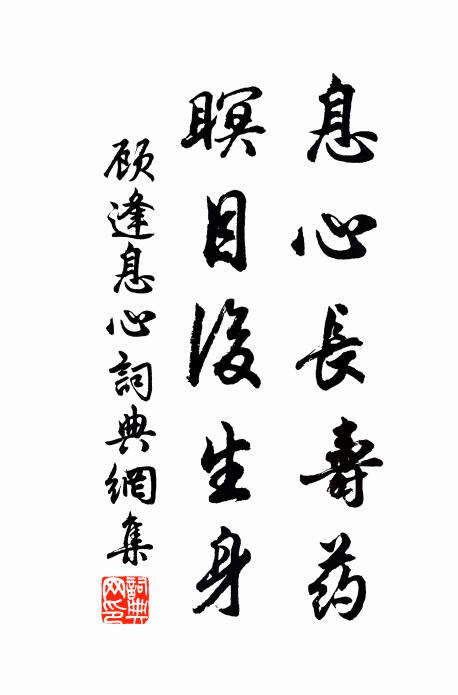 息心長壽药
瞑目後生身
顾逢息心詞典網集
詞典網印